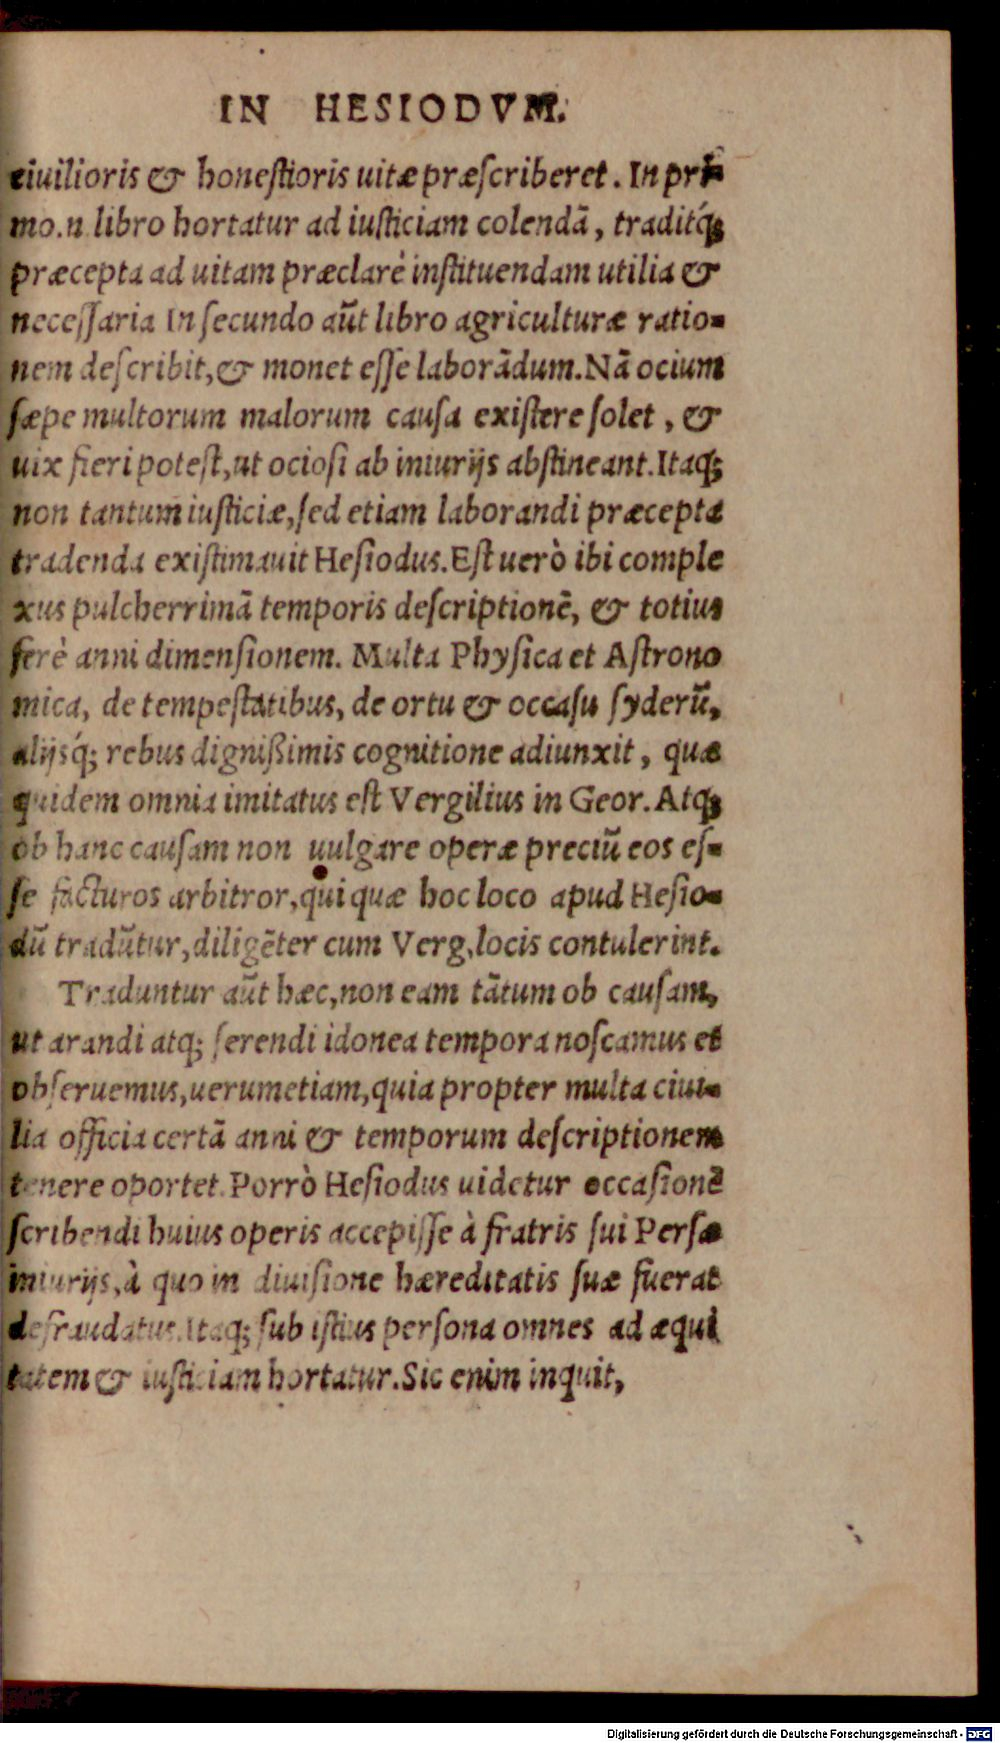 IN HESIODVM.
ciuilioris & honestioris uitæ præscriberet. In pri-
mo.n. libro hortatur ad iusticiam colendā, traditq́;
præcepta ad uitam præclarè instituendam utilia &
necessaria In secundo aūt libro agriculturæ ratio-
nem describit, & monet esse laborādum. Nā ocium
sæpe multorum malorum causa existere solet, &
uix fieri potest, ut ociosi ab iniurijs abstineant. Itaq;
non tantum iusticiæ, sed etiam laborandi præcepta
tradenda existimauit Hesiodus. Est uerò ibi comple
xus pulcherrimā temporis descriptionē, & totius
ferè anni dimensionem. Multa Physica et Astrono
mica, de tempestatibus, de ortu & occasu syderū,
alijsq́; rebus dignißimis cognitione adiunxit, quæ
quidem omnia imitatus est Vergilius in Geor. Atq;
ob hanc causam non uulgare operæ preciū eos es-
se facturos arbitror, qui quæ hoc loco apud Hesio-
dū tradūtur, diligēter cum Verg, locis contulerint.
Traduntur aūt hæc, non eam tātum ob causam,
ut arandi atq; serendi idonea tempora noscamus et
obseruemus, uerumetiam, quia propter multa ciui-
lia officia certā anni & temporum descriptionem
tenere oportet. Porrò Hesiodus uidetur occasionē
scribendi huius operis accepisse à fratris sui Persæ
iniurijs, à quo in diuisione hæreditatis suæ fuerat
defraudatus. Itaq; sub istius persona omnes ad æqui
tatem & iusticiam hortatur. Sic enim inquit,
Digitalisierung gefördert durch die Deutsche Forschungsgemeinschaft - DFG